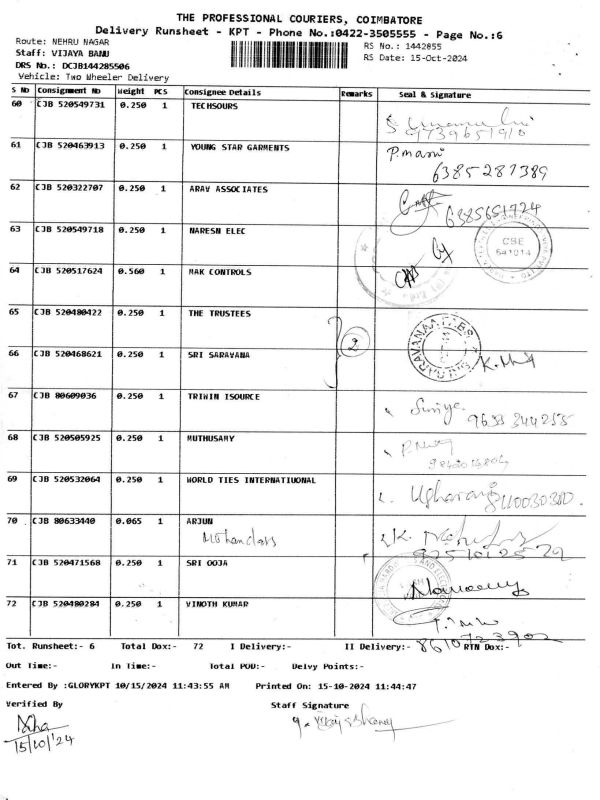 THE PROFESSIONAL COURIERS, COIMBATORE
Delivery Runsheet - KPT - Phone No.:0422-3505555 - Page No.:6
Route: NEHRU NAGAR
RS No.: 1442855
Staff: VIJAYA BANU
RS Date: 15-Oct-2024
DRS No.: DCJB144285506
Vehicle: Two Wheeler Delivery
S No Consignment No Weight PCS Consignee Details Remarks Seal & Signature
60 CJB 520549731 0.250 1 TECHSOURS
9739651910
61 CJB 520463913 0.250 1 YOUNG STAR GARMENTS P.mani
6385287389
62 CJB 520322707 0.250 1 ARAV ASSOCIATES
6385651724
63 CJB 520549718 0.250 1 NARESH ELEC
CBE
641014
64 CJB 520517624 0.560 1 MAK CONTROLS
65 CJB 520480422 0.250 1 THE TRUSTEES
2
66 CJB 520468621 0.250 1 SRI SARAVANA
67 CJB 80609036 0.250 1 TRIWIN ISOURCE
Suriya
9633344255
68 CJB 520505925 0.250 1 MUTHUSAMY
69 CJB 520532064 0.250 1 WORLD TIES INTERNATIUONAL
70 CJB 80633440 0.065 1 ARJUN
Mohandass
71 CJB 520471568 0.250 1 SRI OOJA
72 CJB 520480284 0.250 1 VINOTH KUMAR
8610723902
Tot. Runsheet:- 6 Total Dox:- 72 I Delivery:- II Delivery:- RTN Dox:-
Out Time:- In Time:- Total POD:- Delvy Points:-
Entered By :GLORYKPT 10/15/2024 11:43:55 AM Printed On: 15-10-2024 11:44:47
Verified By Staff Signature
15/10/'24